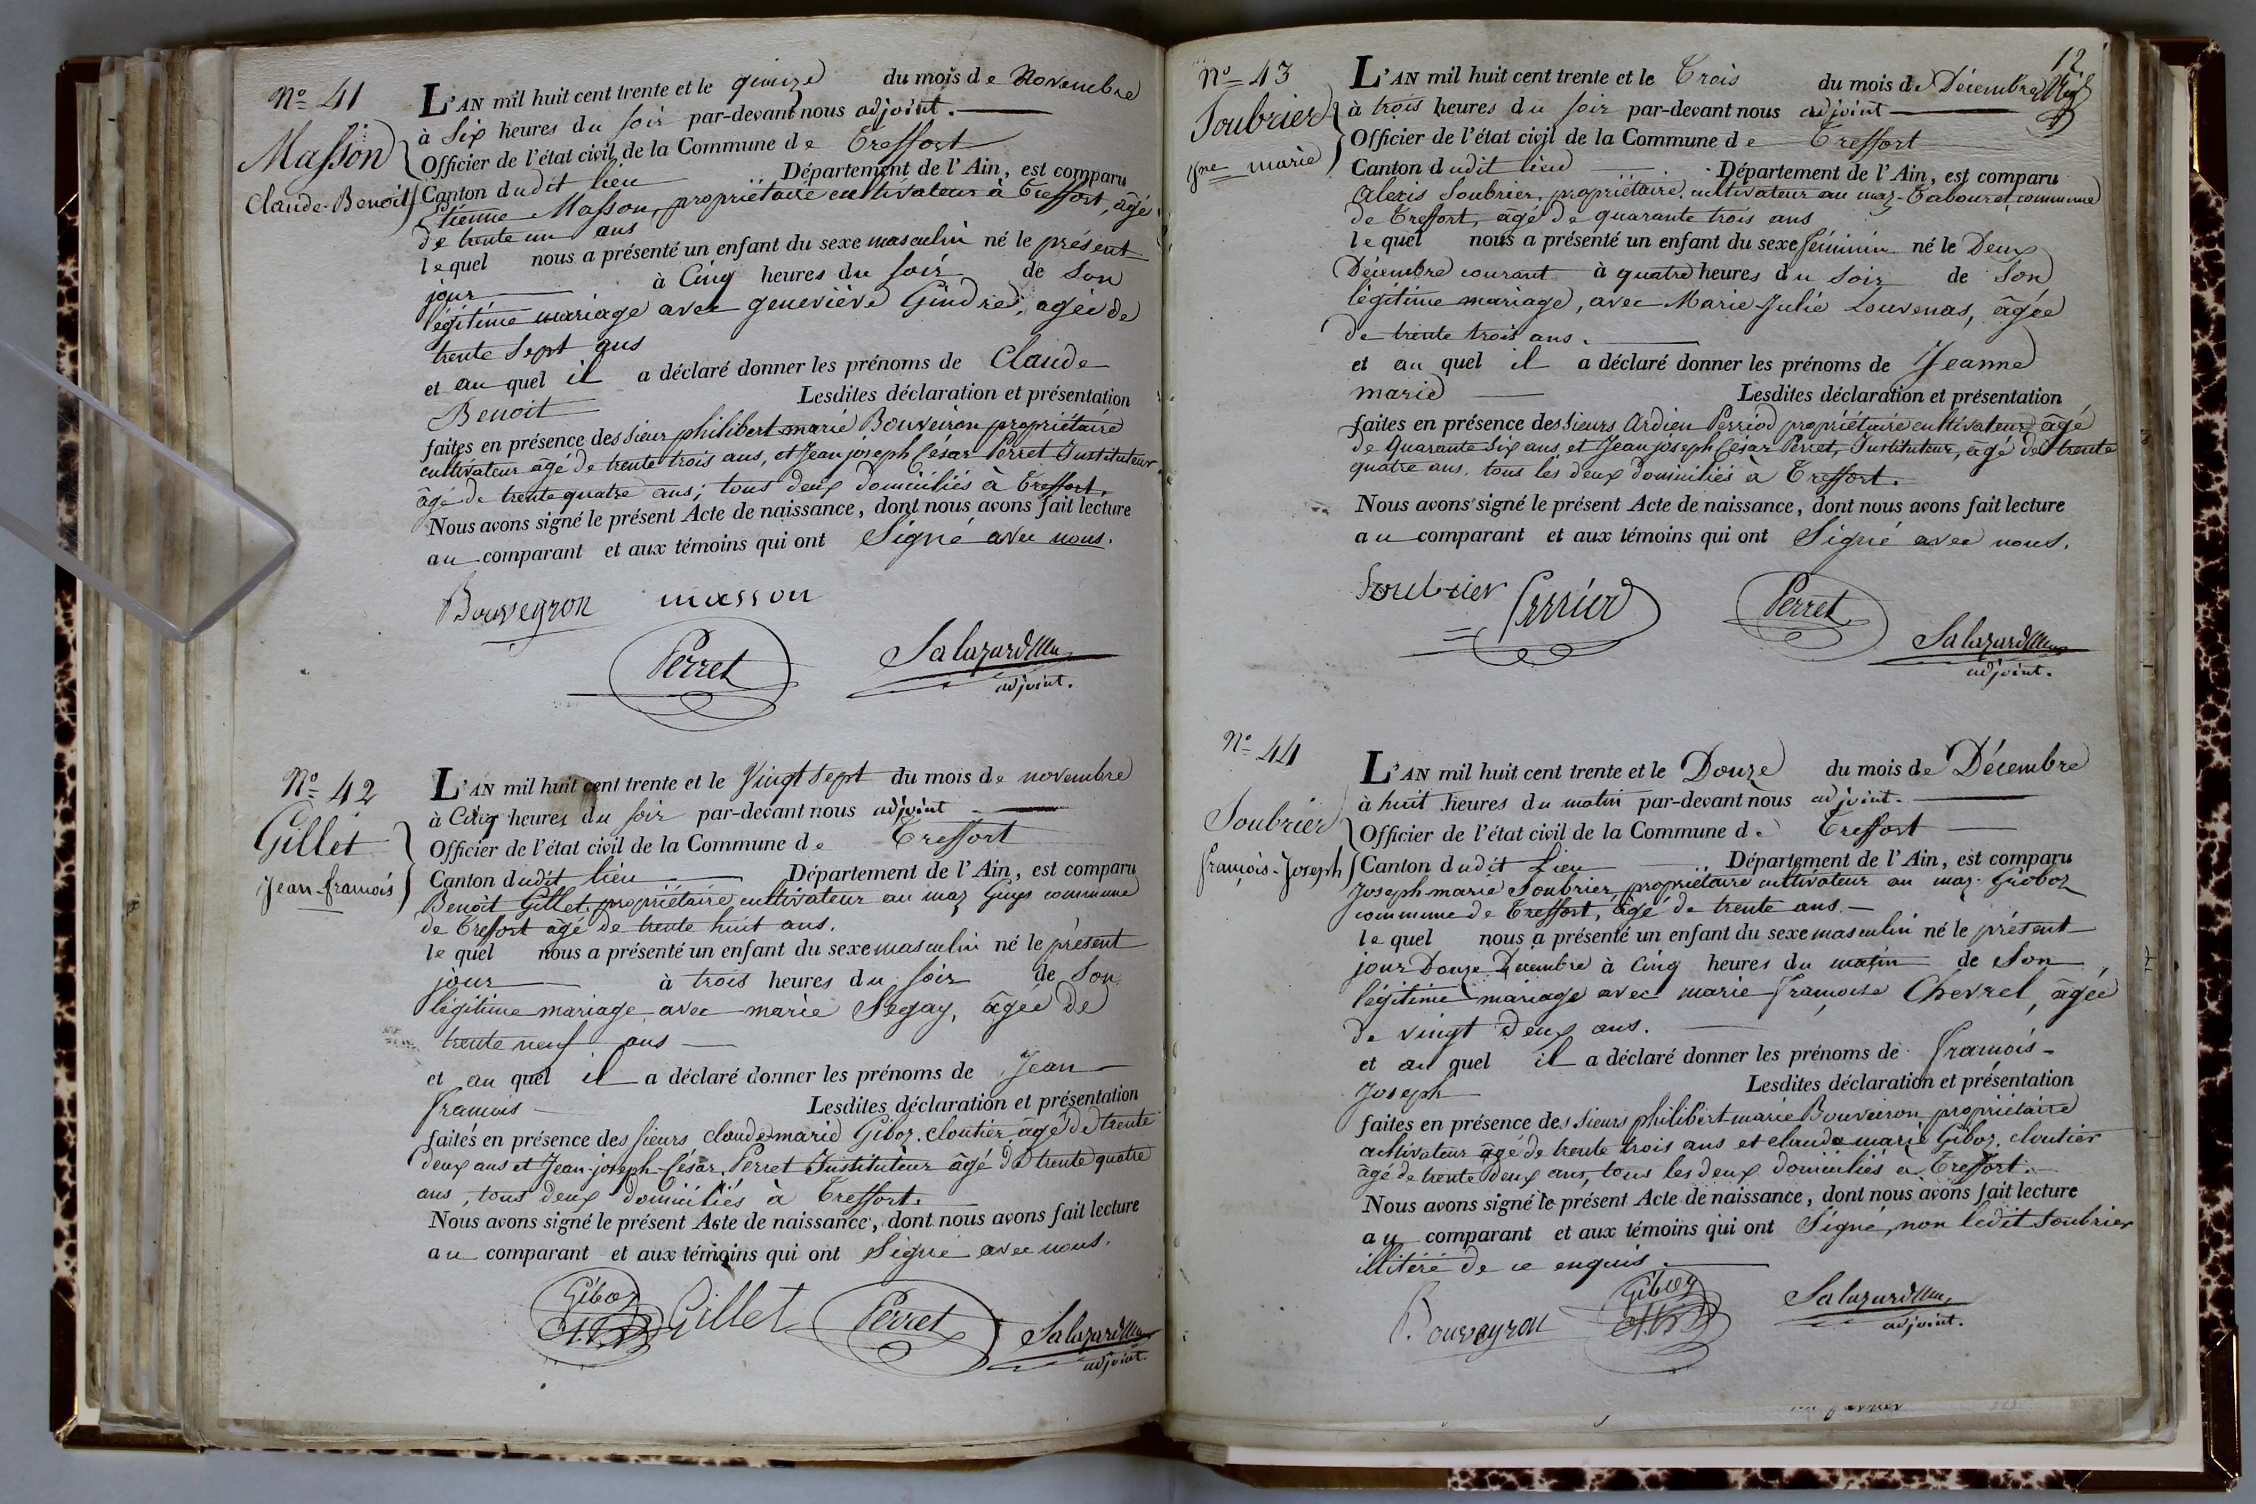 Nº 41
Masson
Claude-Benoit
L'AN mil huit cent trente et le quinze du mois de Novembre
à Six heures du soir par-devant nous adjoint.
Officier de l'état civil de la Commune de Treffort
Canton dudit lieu Département de l'Ain, est comparu
Etienne Masson, propriétaire cultivateur à Treffort, âgé
de trente un ans
lequel nous a présenté un enfant du sexe masculin né le présent
jour à Cinq heures du soir de Son
légitime mariage avec geneviève Gindre, agée de
trente Sept ans
et au quel il a déclaré donner les prénoms de Claude
Benoit Lesdites déclaration et présentation
faites en présence des sieurs philibert marie Bouveiron propriétaire
cultivateur âgé de trente trois ans, et Jean joseph César Perret Instituteur
âgé de trente quatre ans; tous deux domiciliés à Treffort.
Nous avons signé le présent Acte de naissance, dont nous avons fait lecture
au comparant et aux témoins qui ont Signé avec nous.
Bouveyron masson
Perret Salazard
adjoint.
Nº 42
Gillet
Jean-francois
L'AN mil huit cent trente et le Vingt sept du mois de novembre
à Cinq heures du soir par-devant nous adjoint
Officier de l'état civil de la Commune de Treffort
Canton dudit lieu Département de l'Ain, est comparu
Benoit Gillet, propriétaire cultivateur au maz Guys commune
de Treffort âgé de trente huit ans.
lequel nous a présenté un enfant du sexe masculin né le présent
jour à trois heures du soir de Son
légitime mariage avec marie Segay, âgée de
trente neuf ans
et au quel il a déclaré donner les prénoms de Jean
francois Lesdites déclaration et présentation
faites en présence des sieurs claude marie Giboz, cloutier âgé de trente
deux ans et Jean-joseph-César Perret Instituteur âgé de trente quatre
ans, tous deux domiciliés à Treffort.
Nous avons signé le présent Acte de naissance, dont nous avons fait lecture
au comparant et aux témoins qui ont Signé avec nous.
Giboz Gillet Perret Salazard
adjoint.
12
Nº 43
Soubrier
Jne marie
L'AN mil huit cent trente et le Trois du mois de Décembre
à trois heures du soir par-devant nous adjoint
Officier de l'état civil de la Commune de Treffort
Canton dudit lieu Département de l'Ain, est comparu
Alexis Soubrier, propriétaire cultivateur au maz-Tabouret, commune
de Treffort, âgé de quarante trois ans
lequel nous a présenté un enfant du sexe féminin né le Deux
Décembre courant à quatre heures du soir de Son
légitime mariage, avec Marie Julie Louvenas, âgée
de trente trois ans.
et au quel il a déclaré donner les prénoms de Jeanne
marie Lesdites déclaration et présentation
faites en présence des sieurs Ardien Perriod propriétaire cultivateur, âgé
de Quarante Six ans, et Jean joseph César Perret, Instituteur, âgé de trente
quatre ans, tous les deux domiciliés à Treffort.
Nous avons signé le présent Acte de naissance, dont nous avons fait lecture
au comparant et aux témoins qui ont Signé avec nous.
Soubrier Perriod Perret
Salazard
adjoint.
Nº 44
Soubrier
françois-Joseph
L'AN mil huit cent trente et le Douze du mois de Décembre
à huit heures du matin par-devant nous adjoint.
Officier de l'état civil de la Commune de Treffort
Canton dudit Lieu Département de l'Ain, est comparu
Joseph-marie Soubrier, propriétaire cultivateur au maz-Groboz
commune de Treffort, âgé de trente ans.
lequel nous a présenté un enfant du sexe masculin né le présent
jour Douze Décembre à Cinq heures du matin de Son
légitime mariage avec marie françoise Chevrel, âgée
de vingt deux ans.
et au quel il a déclaré donner les prénoms de francois-
Joseph Lesdites déclaration et présentation
faites en présence des sieurs philibert marie Bouveiron propriétaire
cultivateur âgé de trente trois ans et claude marie Giboz, cloutier
âgé de trente deux ans, tous les deux domiciliés à Treffort.
Nous avons signé le présent Acte de naissance, dont nous avons fait lecture
au comparant et aux témoins qui ont Signé, non ledit Soubrier
illitéré de ce enquis.
Bouveyron Giboz Salazard
adjoint.